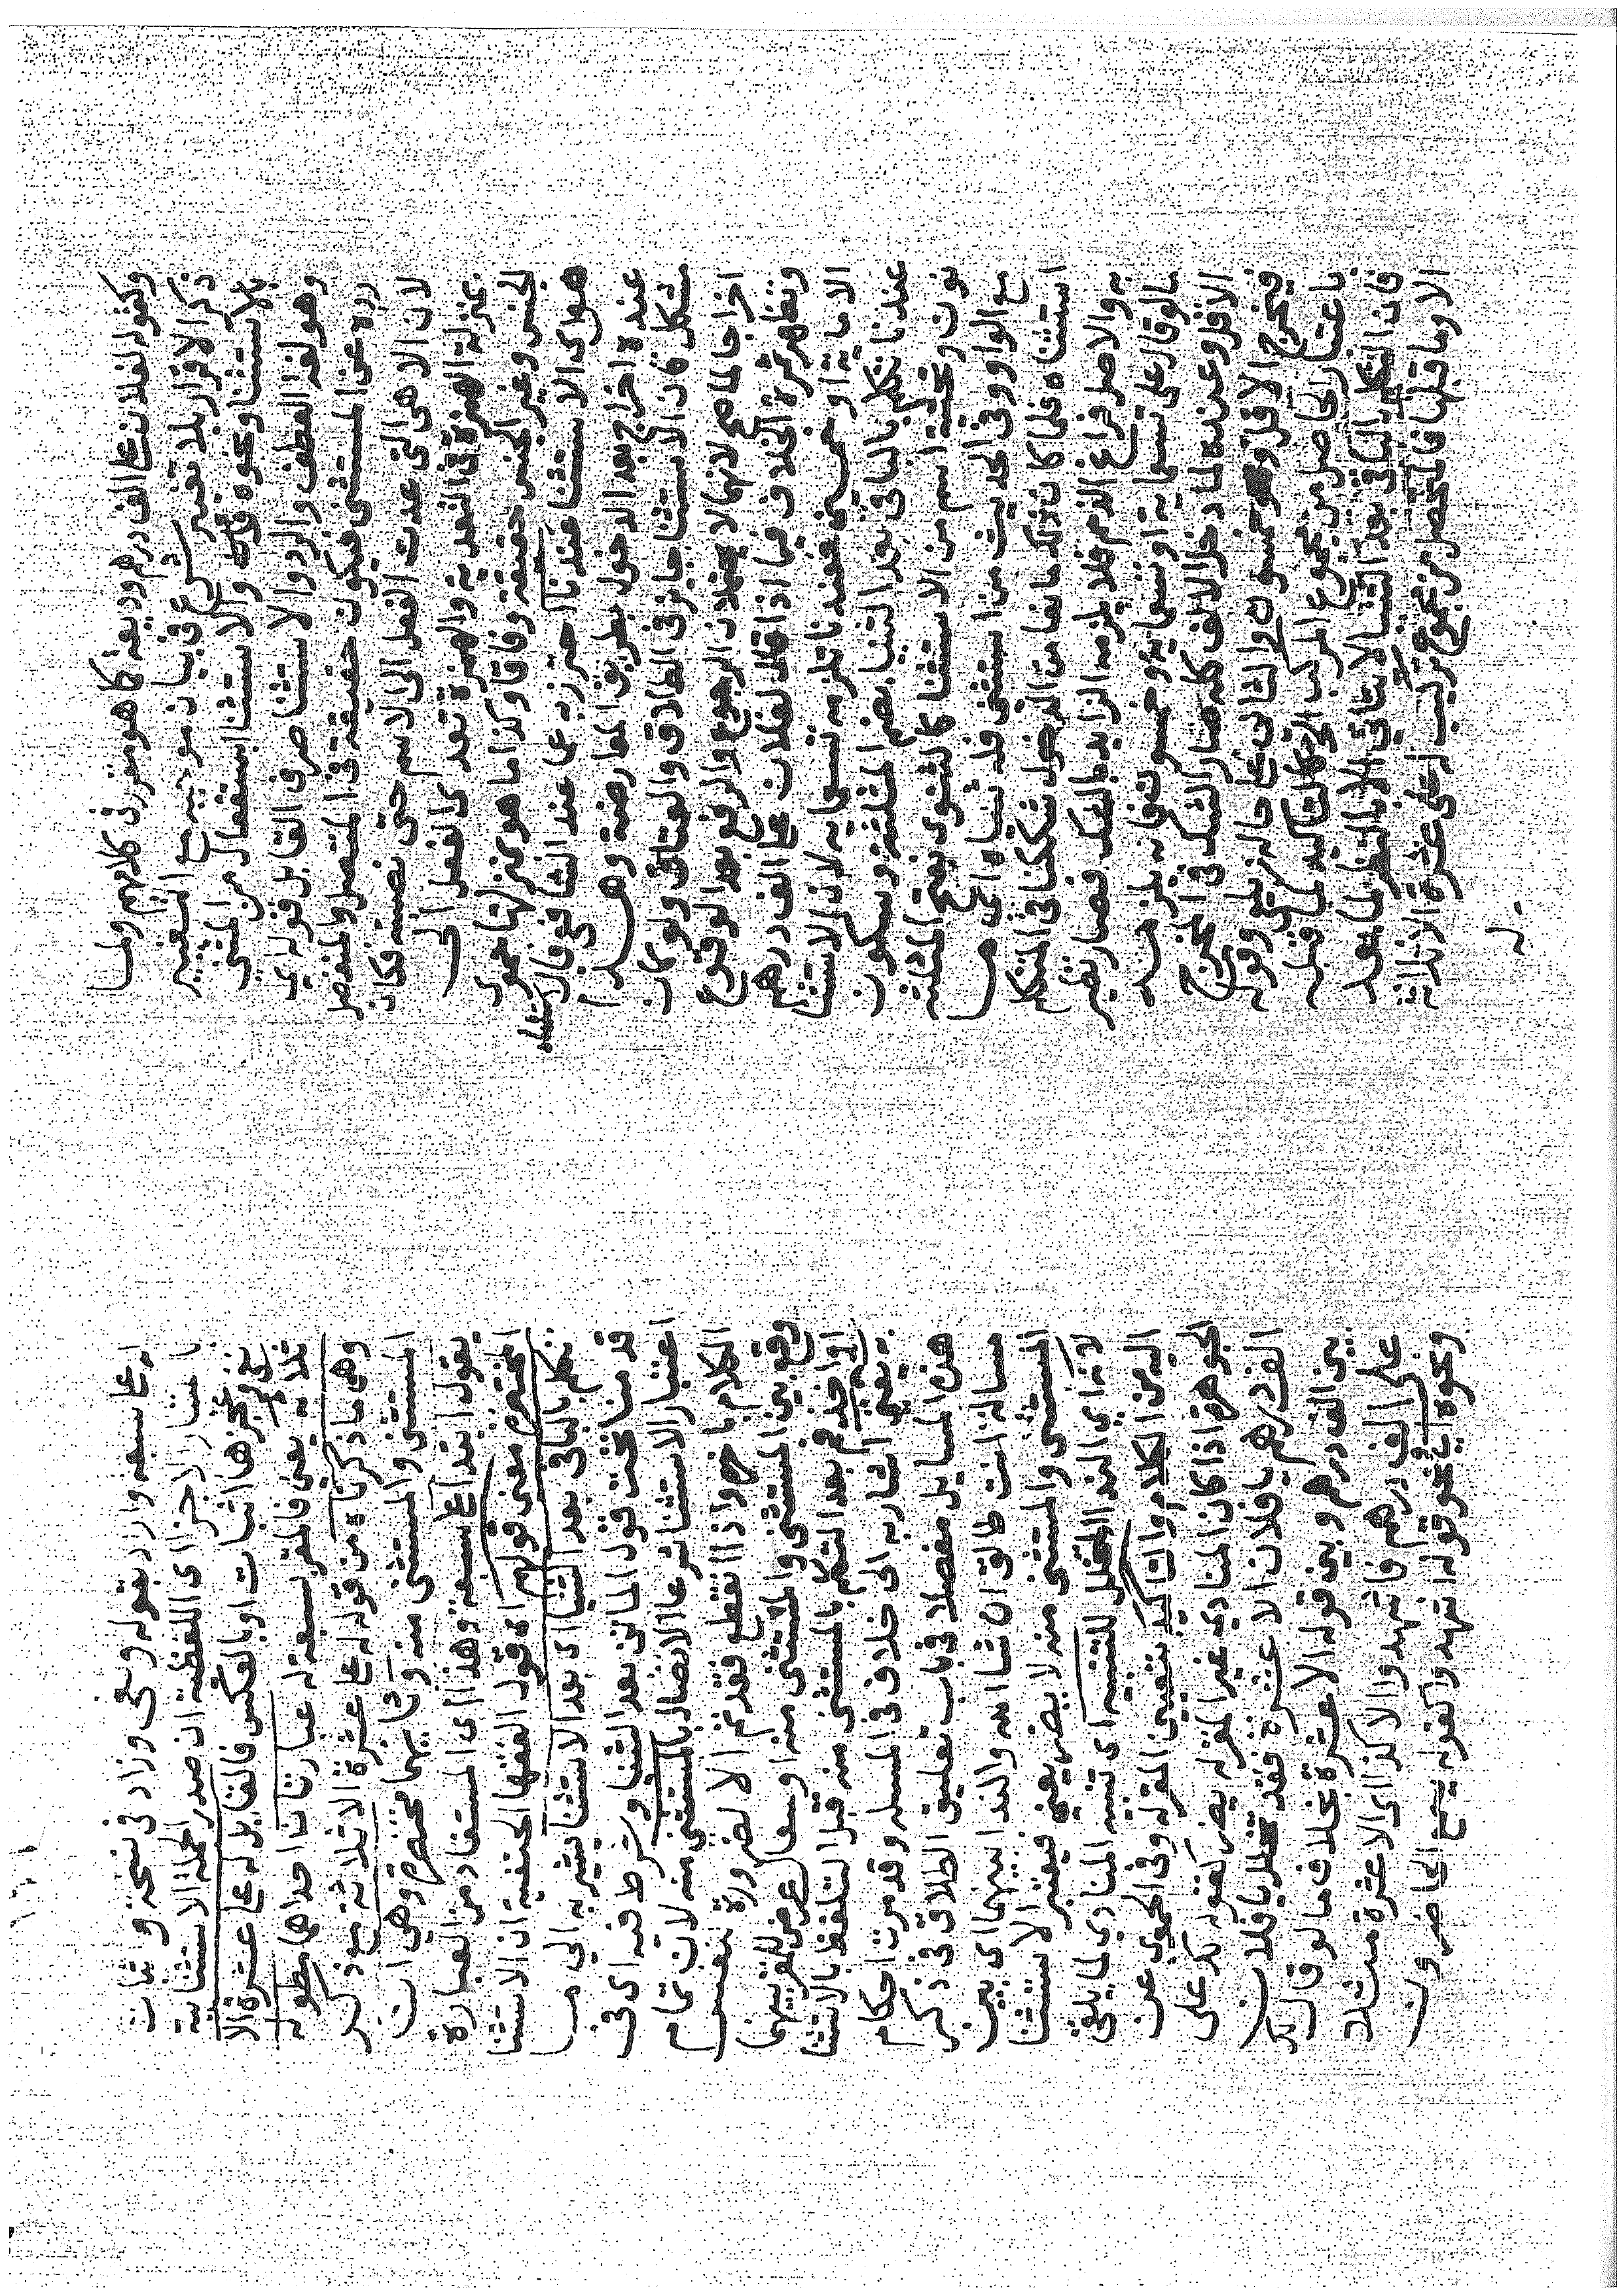 وكقوله لفلان علي الف درهم وديعة كما هو مقرر في كلامهم ولما
ذكر الاقرار بلا تغيير شرع في بيان موجبه مع المغير
بالاستثنا ونحوه فقال والاستثنا استفعال من الثني
وهو لغة العطف والرد والاستثنا صرف القابل قوله اي
رده عن المستثنى فيكون حقيقة في المتصل والمنفصل
لان الا هي التي عدت الفعل الى الاسم حتى نصبته فكانت
بمنزلة الهمزة في التعدية والهمزة تعدي الفعل الى
الجنس وغير الجنس حقيقة وفاقا وكذا ما هو بمنزلتها حموي
هو اي الاستثنا عندنا احترز به عما عند الشافعي فالاستثناء
عنده اخراج بعد الدخول بطريق المعارضة وهذا
مشكل فان الاستثنا جايز في الطلاق والعتاق ولو كان
اخراجا لما صح لانهما لا يحتملان الرجوع والرفع بعد الوقوع
وتظهر ثمرة الخلاف فيما اذا قال لفلان علي الف درهم
الا ماية او خمسين فعندنا تلزمه تسعماية لان الاستثنا
عندنا تكلم بالباقي بعد الثنيا بضم المثلثة وسكون
نون وتحتية اسم من الاستثنا كالثنوى بفتح المثلثة
مع الواو وفي الحديث من استثنى فله ثنياه اي ما
استثناه فلما كان تكلما مانعا من الدخول شككنا في المتكلم
به والاصل فراغ الذمم فلا يلزمه الزايد بالشك فصار نظير
ما لو قال علي تسعماية او تسعماية وخمسون فانه يلزمه
الاقل وعنده لما دخل الالف كله صار الشك في المخرج
فيخرج الاقل وهو خمسون والثاني على حاله زيلعي وقوله
باعتبار الحاصل من مجموع المركب اي كالتاكيد لما قبله
فان التكلم بالباقي بعد الثنيا لا يتاتى الا بالنظر لما بعد
الا وما قبلها فالمحصل من مجموع تركيب له علي عشرة الا ثلاثة
له علي سبعة واراد بقوله ونفي وزاد في نسخة واثبات
باعتبار الاجزا اي اللفظية ان صدر الجملة الاستثنايية
نفي وعجزها اثبات او بالعكس فالقايل له علي عشرة الا
ثلاثة يعني فالمقر بسبعة له عبارتان احداهما مطولة
وهي ما ذكرناه من قوله له علي عشرة الا ثلاثة مع ذكر
المستثنى والمستثنى منه وثانيهما مختصرة وهي ان
يقول ابتدا علي سبعة وهذا اي المستفاد من العبارة
المختصرة معنى قولهم اي قول الفقها الحنفية ان الاستثنا
تكلم بالباقي بعد الثنيا اي بعد الاستثنا يشير به الى ما
قدمناه تحت قول الماتن بعد الثنيا وشرط فيه اي في
اعتبار الاستثنا شرعا الاتصال بالمستثنى منه لان تمام
الكلام باخره واذا انقطع فقد تم الا لضرورة تنفس
وقع بين المستثنى والمستثنى منه او سعال عرض للمقر بينهما
او اخذ فم بعد التكلم بالمستثنى منه قبل التلفظ بالاستثنا
به يفتى اشار به الى خلاف في المسيلة وقد مرت احكام
هذه المسايل مفصلا في باب تعليق الطلاق في ذكر
مسالة انت طالق ان شا الله والندا بينهما اي بين
المستثنى والمستثنى منه لا يضر يعني فيعتبر الاستثنا
لانه اي الندا المتخلل للتنبيه اي تنبيه المنادي لما يلقى
اليه من الكلام والتاكيد بتعيين المقر له وفي الحموي عن
الجوهرة اذا كان المنادي غير المقر له يضر كقوله لك علي
الف درهم يا فلان الا عشرة فقد تخلل يا فلان
بين الف درهم وبين قوله الا عشرة بخلاف ما لو قال لك
علي الف درهم فاشهدوا الا كذا اي الا عشرة مثلا
ونحوه اي نحو قوله اشهدوا كقوله يسمع الحاضرون